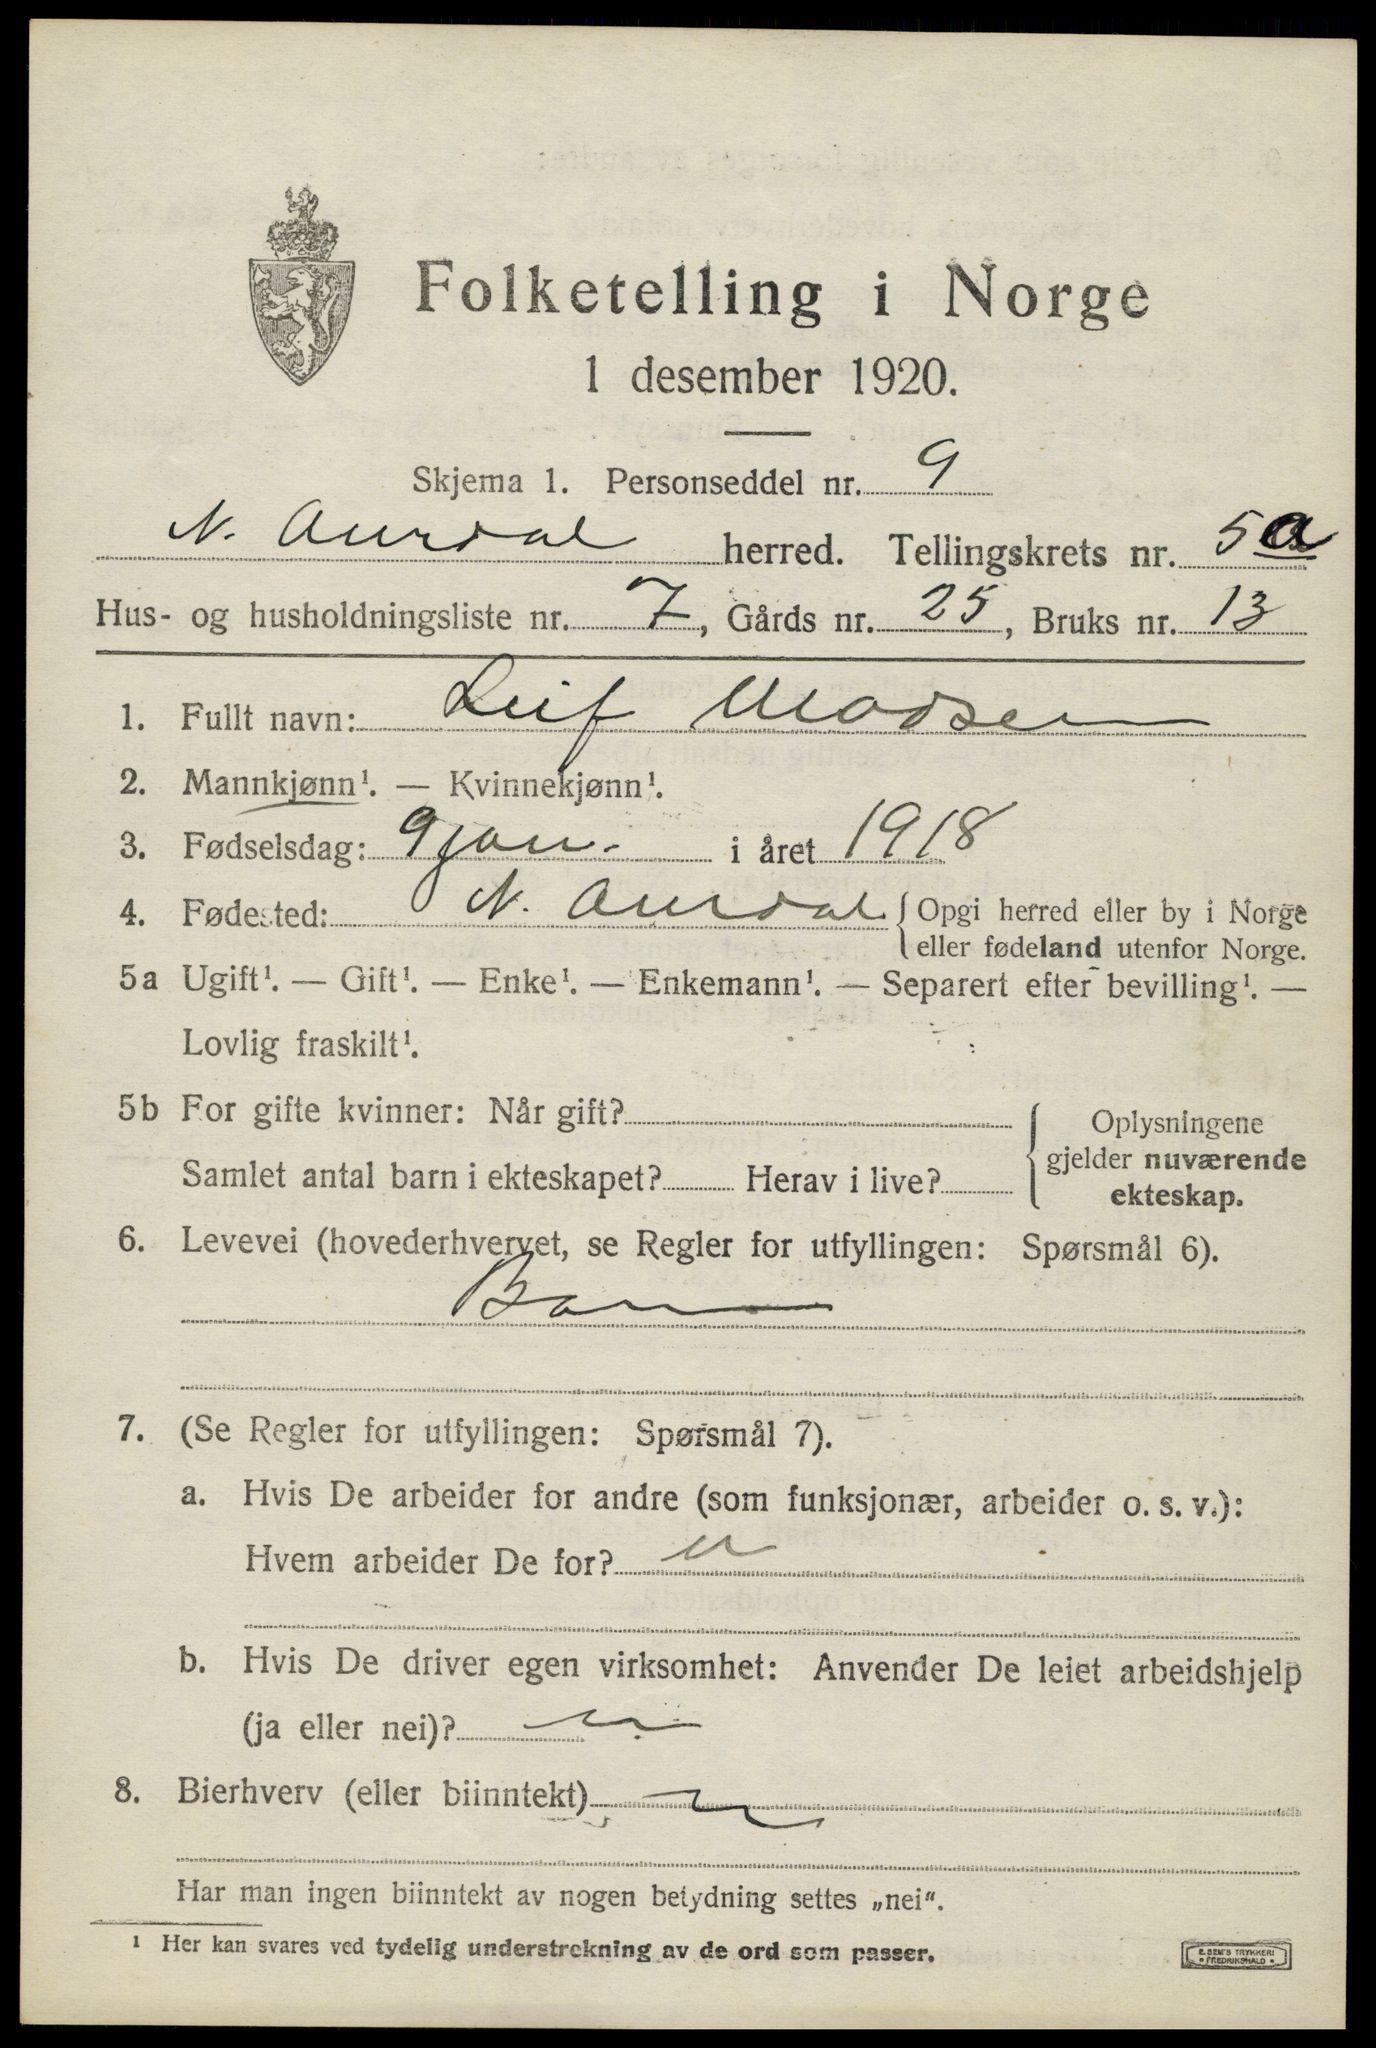 Folketelling i Norge
1 desember 1920.
Skjema 1. Personseddel nr. 9
N. Aurdal herred. Tellingskrets nr. 5a
Hus- og husholdningsliste nr. 7, Gårds nr. 25, Bruks nr. 13
1. Fullt navn: Leif Madsen
2. Mannkjønn¹. — Kvinnekjønn¹.
3. Fødselsdag: 9 jan. i året 1918
4. Fødested: N. Aurdal { Opgi herred eller by i Norge
eller fødeland utenfor Norge.
5a Ugift¹. — Gift¹. — Enke¹. — Enkemann¹. — Separert efter bevilling¹. —
Lovlig fraskilt¹.
5b For gifte kvinner: Når gift?
Samlet antal barn i ekteskapet? Herav i live?
Oplysningene
gjelder nuværende
ekteskap.
6. Levevei (hovederhvervet, se Regler for utfyllingen: Spørsmål 6).
Barn
7. (Se Regler for utfyllingen: Spørsmål 7).
a. Hvis De arbeider for andre (som funksjonær, arbeider o. s. v.):
Hvem arbeider De for?
b. Hvis De driver egen virksomhet: Anvender De leiet arbeidshjelp
(ja eller nei)?
8. Bierhverv (eller biinntekt)
Har man ingen biinntekt av nogen betydning settes „nei“.
¹ Her kan svares ved tydelig understrekning av de ord som passer.
E. SEM'S TRYKKERI
• FREDRIKSHALD •